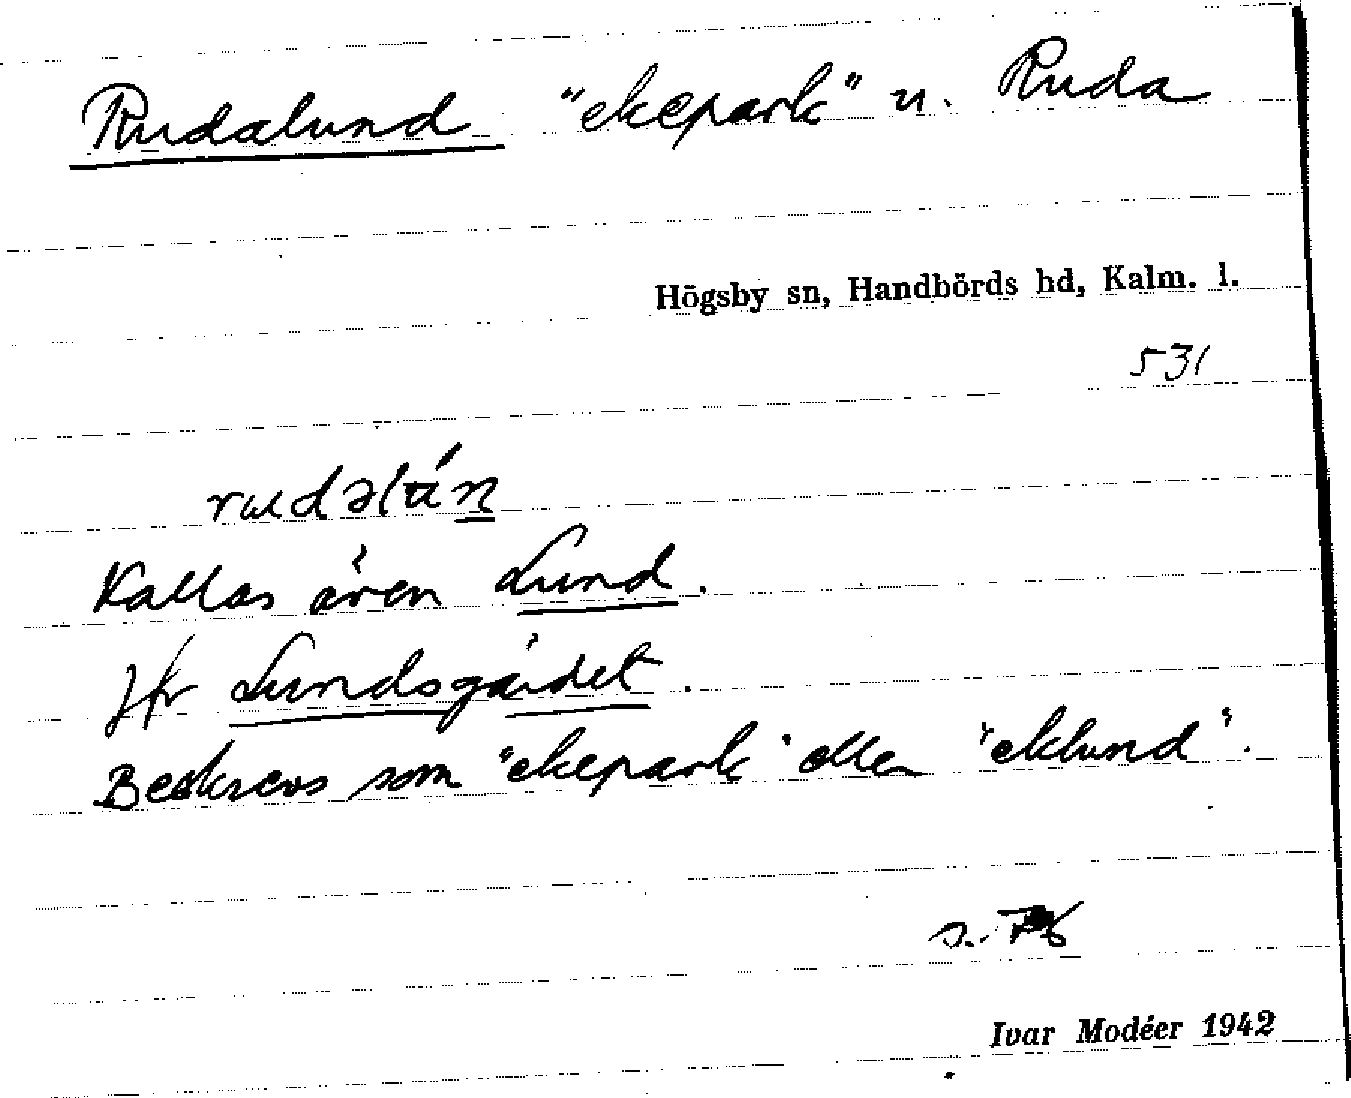 Rudalund "ekepark" u. Ruda
Högsby sn, Handbörds hd, Kalm. l.
531
rudəlún
Kallas även Lund.
Jfr Lundsgärdet.
Beskrevs som "ekepark" eller "eklund".
Ivar Modéer 1942